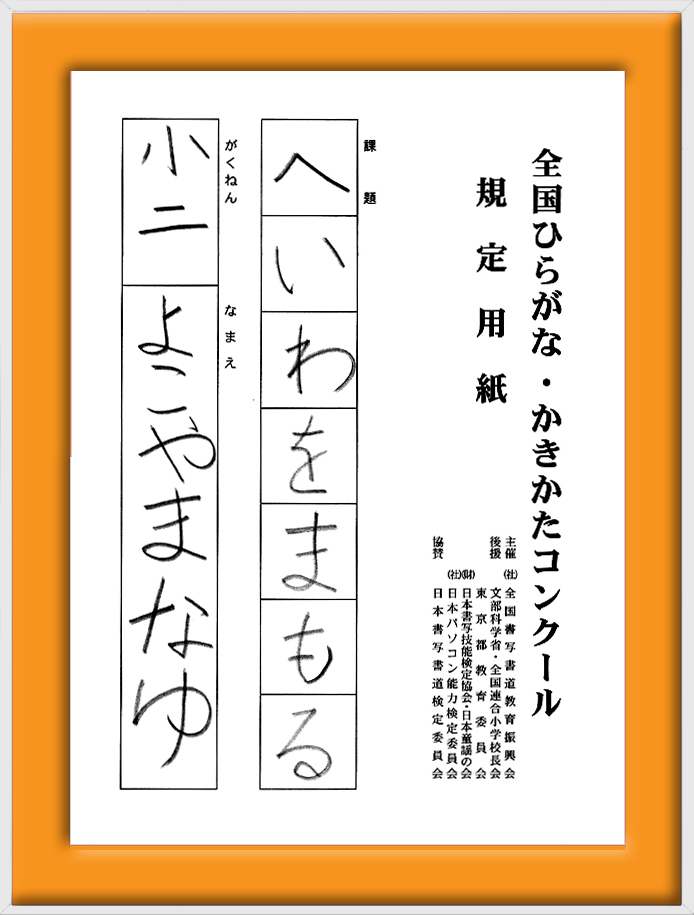 全国ひらがな・かきかたコンクール
規定用紙
主催 (社)全国書写書道教育振興会
後援 文部科学省・全国連合小学校長会
東京都教育委員会
(財)日本書写技能検定協会・日本童謡の会
(社)日本パソコン能力検定委員会
協賛 日本書写書道検定委員会
課題
へいわをまもる
がくねん
小二
なまえ
よこやまなゆ